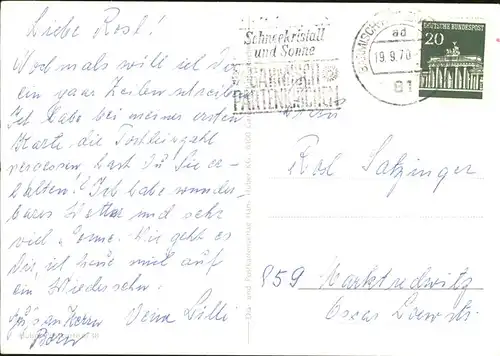 Liebe Rosl!
Nochmals will ich Dir
ein paar Zeilen schreiben
Ich habe bei meiner ersten
Karte die Postleitzahl
vergessen, hast Du Sie er-
halten? Ich habe wunder-
bares Wetter und sehr
viel Sonne. Wie geht es
Dir, ich freue mich auf
ein Wiedersehn.
Deine Lilli
Schneekristall
und Sonne
GARMISCH
PARTENKIRCHEN
19.9.70
DEUTSCHE BUNDESPOST
20
Rosl Satzinger
859 Marktredwitz
Oscar